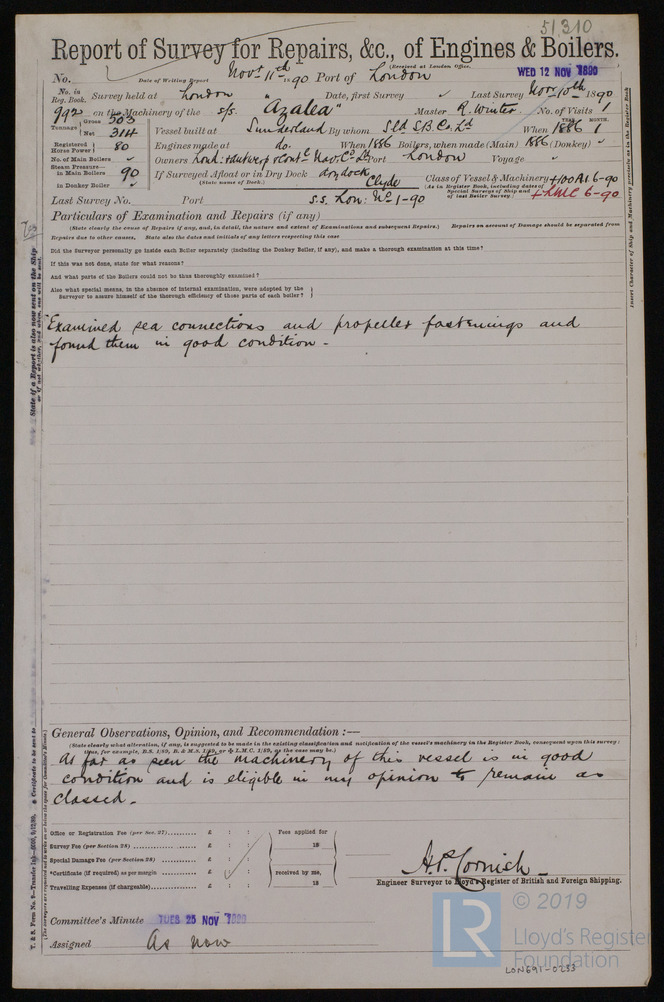 51310
Report of Survey for Repairs, &c., of Engines & Boilers.
(Received at London Office,
WED 12 NOV 1890
No. Date of Writing Report Novr 11th 1890 Port of London
No. in Reg. Book. Survey held at London Date, first Survey " Last Survey Nov. 10th 1890
992 on the Machinery of the s/s. "Azalea" Master R. Winter. No. of Visits 1
Tonnage Gross 505
Net 314
Vessel built at Sunderland By whom Sld S.B. Co. Ld When 1886 1
YEAR. MONTH.
Registered Horse Power 80
Engines made at do. When 1886 Boilers, when made (Main) 1886 (Donkey) "
No. of Main Boilers "
Owners Port London Voyage "
Steam Pressure— in Main Boilers 90
in Donkey Boiler "
If Surveyed Afloat or in Dry Dock drydock
(State name of Dock.) Clyde
Class of Vessel & Machinery +100A1 6-90
(As in Register Book, including dates of Special Surveys of Ship and of last Boiler Survey.) +LMC 6-90
Last Survey No. Port S.S. Lon. No 1-90
Particulars of Examination and Repairs (if any)
(State clearly the cause of Repairs if any, and, in detail, the nature and extent of Examinations and subsequent Repairs.) Repairs on account of Damage should be separated from
Repairs due to other causes, State also the dates and initials of any letters respecting this case
Did the Surveyor personally go inside each Boiler separately (including the Donkey Boiler, if any), and make a thorough examination at this time?
If this was not done, state for what reasons?
And what parts of the Boilers could not be thus thoroughly examined?
Also what special means, in the absence of internal examination, were adopted by the
Surveyor to assure himself of the thorough efficiency of those parts of each boiler?
Examined sea connections and propeller fastenings and
found them in good condition -
General Observations, Opinion, and Recommendation :—
(State clearly what alteration, if any, is suggested to be made in the existing classification and notification of the vessel's machinery in the Register Book, consequent upon this survey:
thus, for example, B.S. 1/89, B. & M.S. 1/89, or + L.M.C. 1/89, as the case may be.)
As far as seen the machinery of this vessel is in good
condition and is eligible in my opinion to remain as
classed.
Office or Registration Fee (per Sec. 27) £ : : Fees applied for
Survey Fee (per Section 28) £ : : 18
Special Damage Fee (per Section 28) £ : :
*Certificate (if required) as per margin £ : : received by me,
Travelling Expenses (if chargeable) £ : : 18
A.P. Cornish
Engineer Surveyor to Lloyd's Register of British and Foreign Shipping.
Committee's Minute TUES 25 NOV 1890
Assigned As now
© 2019
LR Lloyd's Register
Foundation
LON691-0233
State if a Report is also now sent on the Ship
or if not whether, and when, one will be sent.
Insert Character of Ship and Machinery precisely as in the Register Book